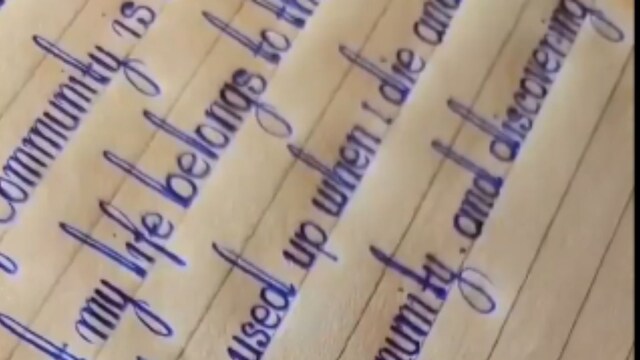 community is
my life belongs to th
used up when i die an
nunity. and discovering